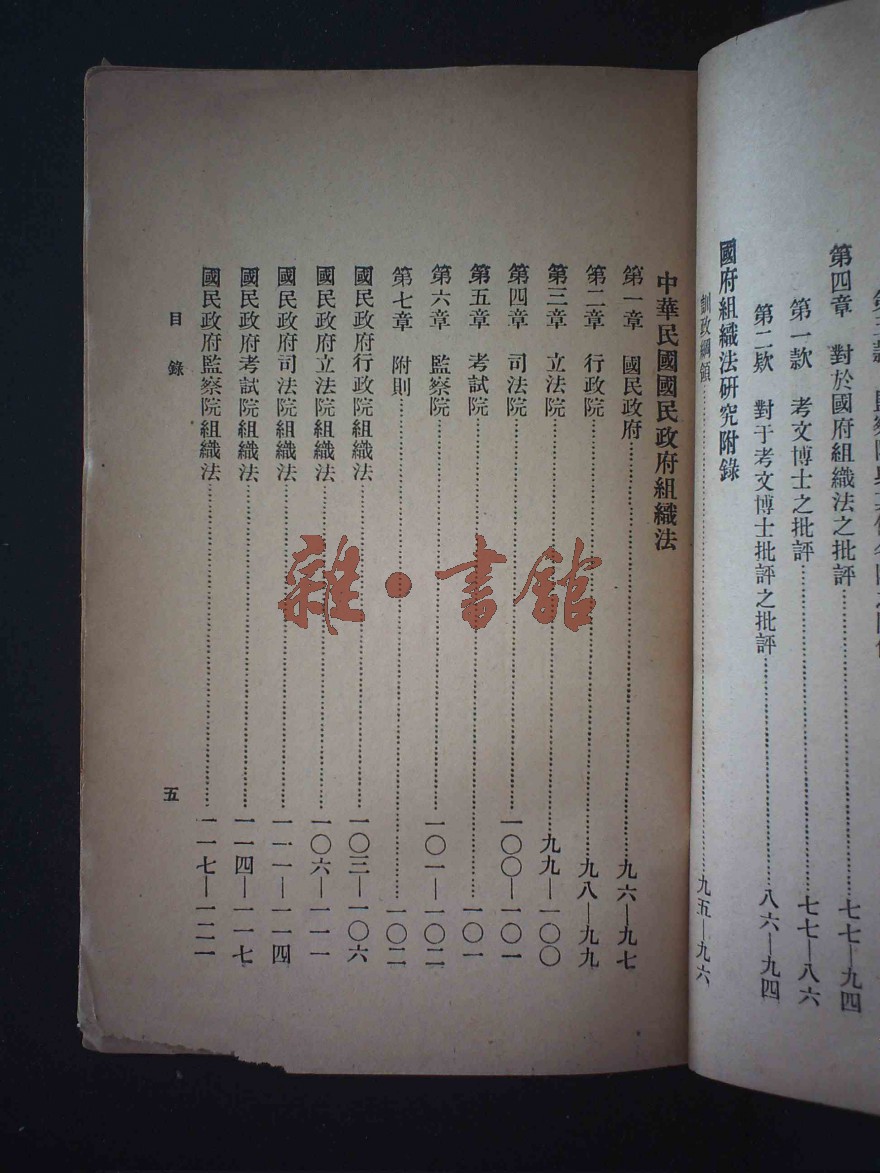 第四章　對於國府組織法之批評……七七—九四
第一款　考文博士之批評……七七—八六
第二欵　對于考文博士批評之批評……八六—九四
國府組織法研究附錄
訓政綱領……九五—九六
中華民國國民政府組織法
第一章　國民政府……九六—九七
第二章　行政院……九八—九九
第三章　立法院……九九—一〇〇
第四章　司法院……一〇〇—一〇一
第五章　考試院……一〇一
第六章　監察院……一〇一—一〇二
第七章　附則……一〇二
國民政府行政院組織法……一〇三—一〇六
國民政府立法院組織法……一〇六—一一一
國民政府司法院組織法……一一一—一一四
國民政府考試院組織法……一一四—一一七
國民政府監察院組織法……一一七—一二一
目錄
五
雜·書館